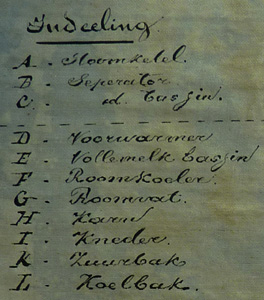 Indeeling
A - Stoomketel.
B - Seperator
C - id. bassin.
D - Voorwarmer
E - Vollemelk bassin
F - Roomkoeler.
G - Roomvat.
H - Karn
I - Kneder.
K - Zuurbak
L - Koelbak.